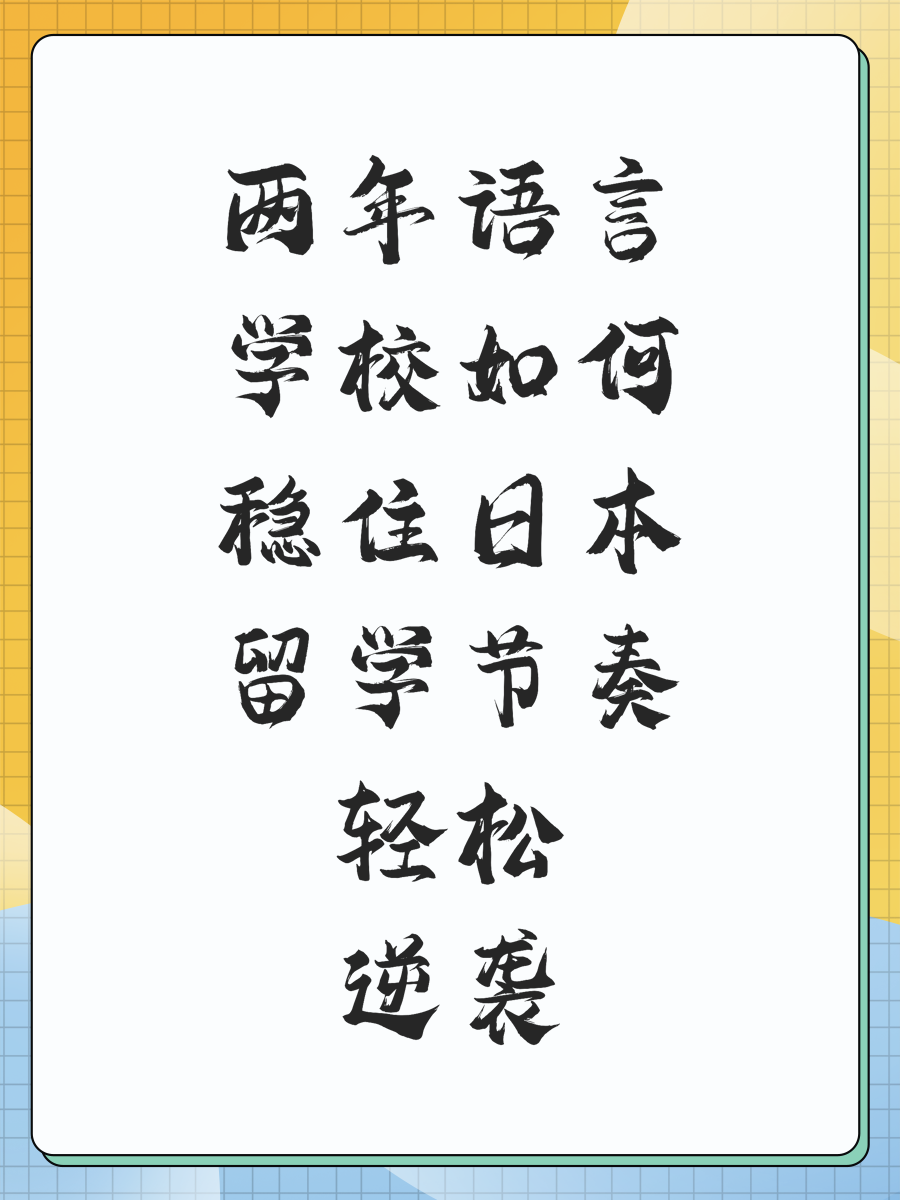 两年语言
学校如何
稳住日本
留学节奏
轻松
逆袭